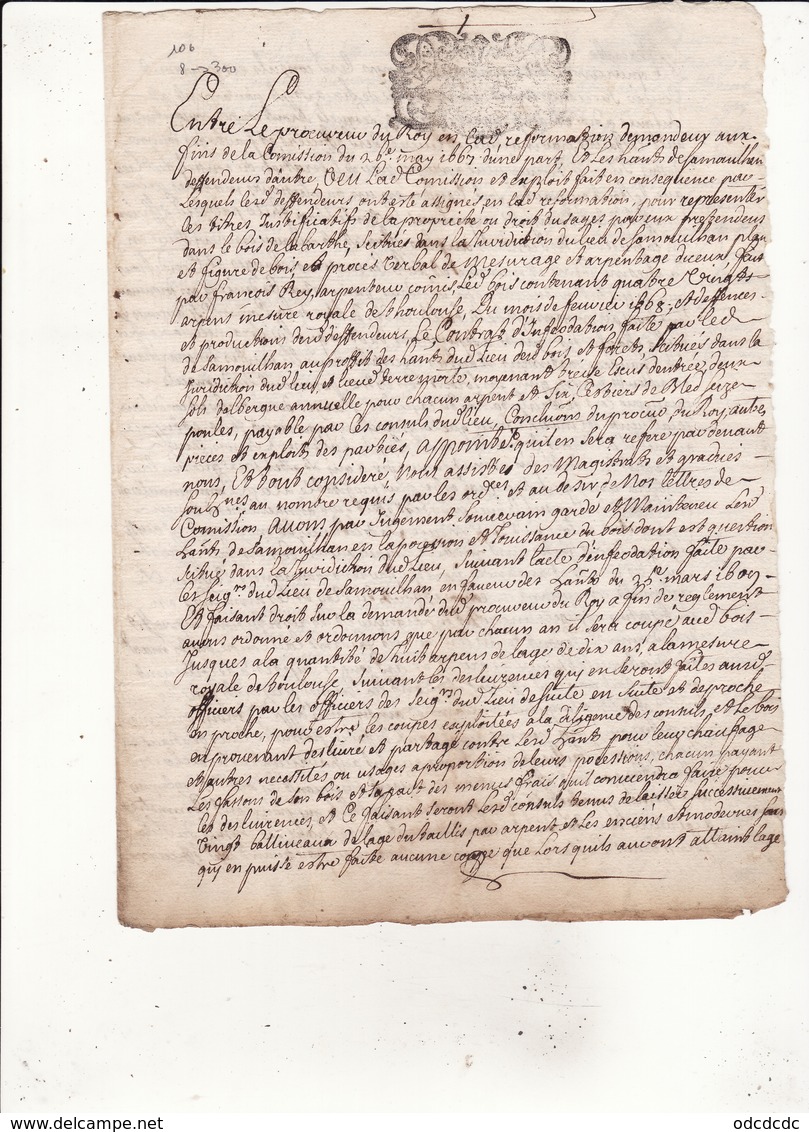 106
8 → 300
Entre Le procureur du Roy en lad. refformation demandeur aux
fins de la Comission du 26e may 1667 dune part, Et Les habts de Samouilhan
deffendeurs dautre, Veu Lad Comission et exploit fait en consequence par
Lesquels lesd deffendeurs ont esté assignes en lad reformation, pour representer
les titres Justificatifs de la propriete ou droit dusages par eux prethendeus
dans le bois de labarthe, scitués dans la Juridiction du lieu de Samouilhan plan
et figure de bois, et procés Verbal de Mesurage et arpentage diceux fait
par francois Rey, arpenteur comis led bois contenant quatre Vingts
arpens mesure royale de thoulouse, Du mois de feuvrier 1668, et deffences
et productions desd deffendeurs, Le Contrat d'infeodation faite par led
de Samouilhan au proffit des habts dud Lieu desd bois et forets scitués dans la
Juridiction dud lieu, et lieu de terremorte, moyenant treise escus dentrée, deux
sols dalbergue annuelle pour chacun arpent et six
poules, payable par les consuls dud lieu, Conclusions du procur du Roy, autres
pieces et exploits des parties, appointé quil en sera refere par devant
nous, Et tout consideré, Nous assistés des Magistrats et gradues
au nombre requis par les ordces et au desir de Nos lettres de
Comission Avons par Jugement Souverain gardé et Maintenu Lesd
habts de Samouilhan en la possession et Jouissance du bois dont est question
scitué dans la Juridiction dud Lieu, suivant lacte d'infeodation faite par
le seigr dud Lieu de Samouilhan en faveur des habts du mars
Et faisant droit sur la demande dud procureur du Roy a fin de reglement
avons ordonné et ordonnons que par chacun an il sera coupé aud bois
Jusques a la quantité de huit arpens de lage de dix ans, a la mesure
royale de toulouse, suivant les deslivrences qui en seront faites ausd
officiers par les officiers des seigrs dud Lieu de suite en suite et de proche
en proche, pour estre les coupes exploitées a la diligence des consuls, et le bois
en provenant deslivré et partagé contre lesd habts pour leur chauffage
et autres necessités ou usages a proportion de leurs possessions, chacun payant
les fassons de son bois et sa part des menus frais quil conviendra faire pour
les deslivrences, et Ce faisant seront lesd consuls tenus de laisser successivement
vingt balliveaux de lage du taillis par arpent et les enciens et modernes sans
qu'y en puisse estre faite aucune coupe que Lors quils auront attaint lage
odcdcdc